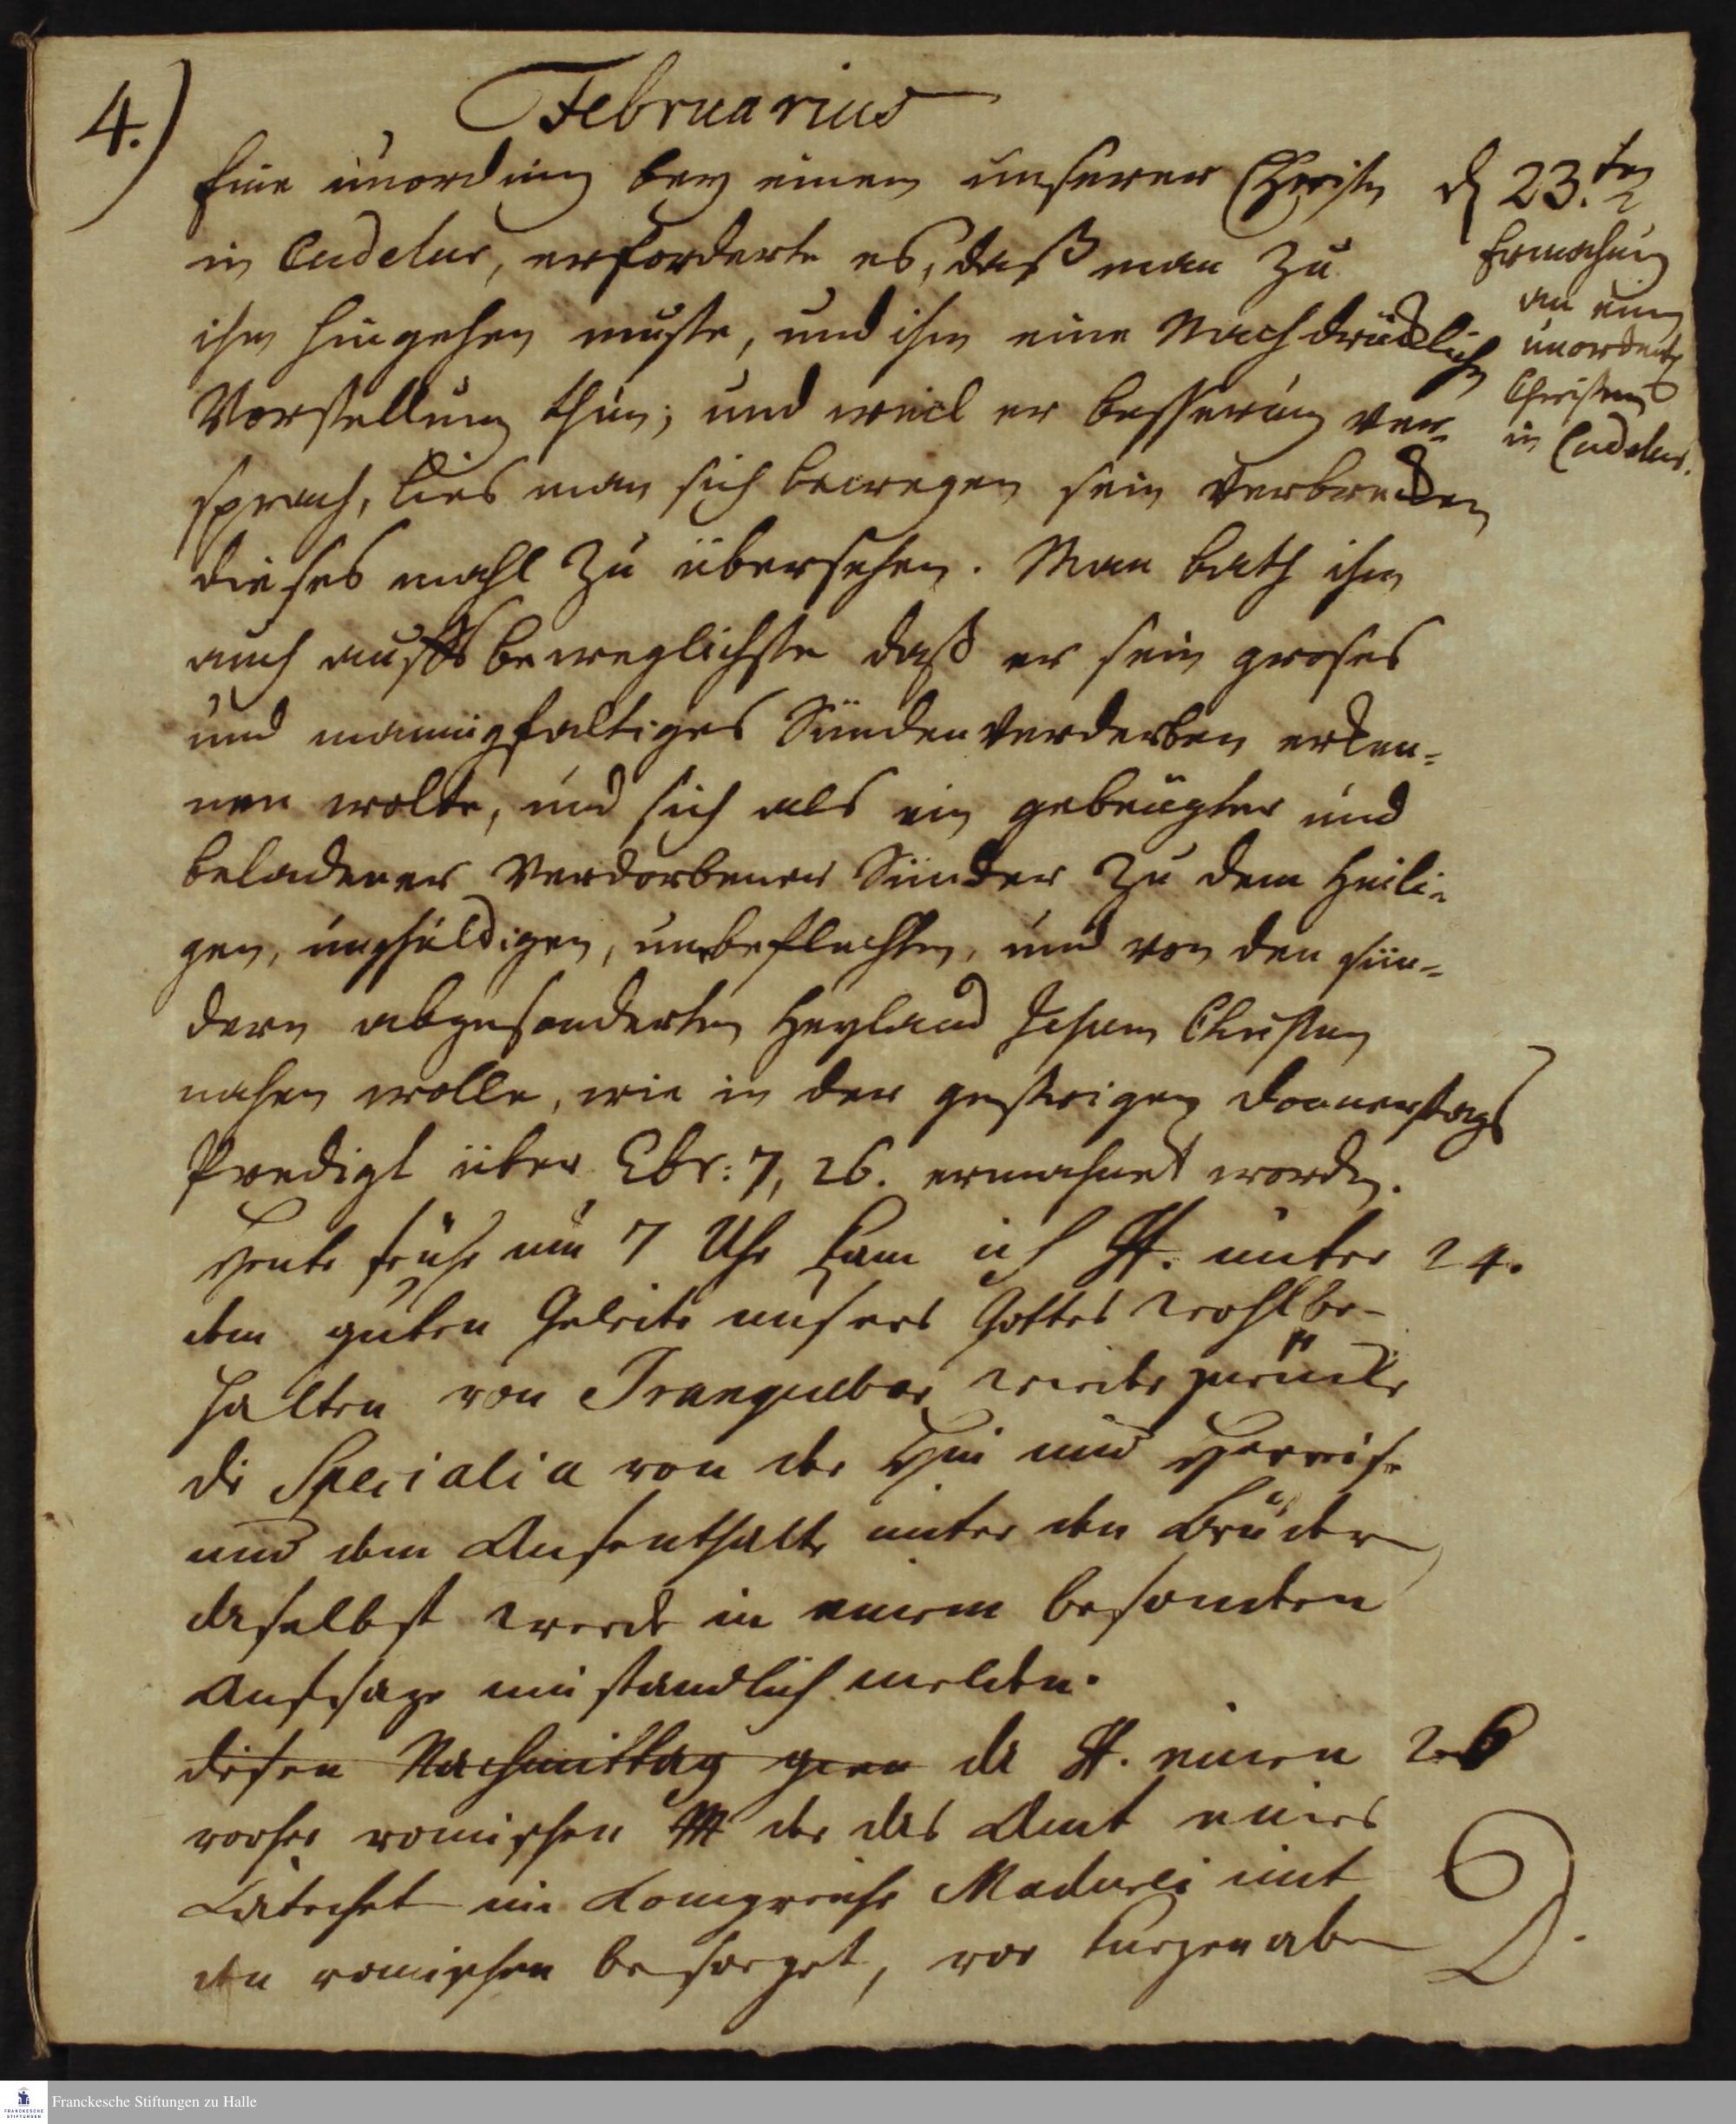 4.)
Februarius
Eine unordnung bey einem unserer Christen
in Cudelur, erforderte es, daß man zu
ihm hingehen muste, und ihm eine Nachdrückliche
Vorstellung thun; und weil er besserung ver-
sprach, lies man sich bewegen sein verbrechen
dieses mahl zu übersehen. Man bath ihn
auch aufs beweglichste daß er sein groses
und mannigfaltiges Sündenverderben erken-
nen wolte, und sich als ein gebeugter und
beladener verdorbener Sünder zu dem Heili-
gen, unschuldigen, unbeflechten, und von den sün-
dern abgesonderten Heyland Jesum Christum
nahen wolle, wie in der gestrigen donnerstags
Predigt über Ebr: 7, 26. ermahnet worden.
Heute frühe um 7 Uhr kam ich H. unter
dem guten Geleite unsers Gottes wohlbe-
halten von Tranquebar wieder zurück
die Specialia von der Hin und Herreise
und dem Aufenthalte unter den Brüdern
daselbst werde in einem besondern
Aufsaze umständlich melden.
diesen Nachmittag da H. einen
vorher romischen der das Amt eines
Catechet im Königreiche Madurei mit
den romischen besorget, vor kurzen aber
d 23.ten
Ermahnung
an einen
unordentl
Christen
in Cudelur.
24.
26
D.
Franckesche Stiftungen zu Halle